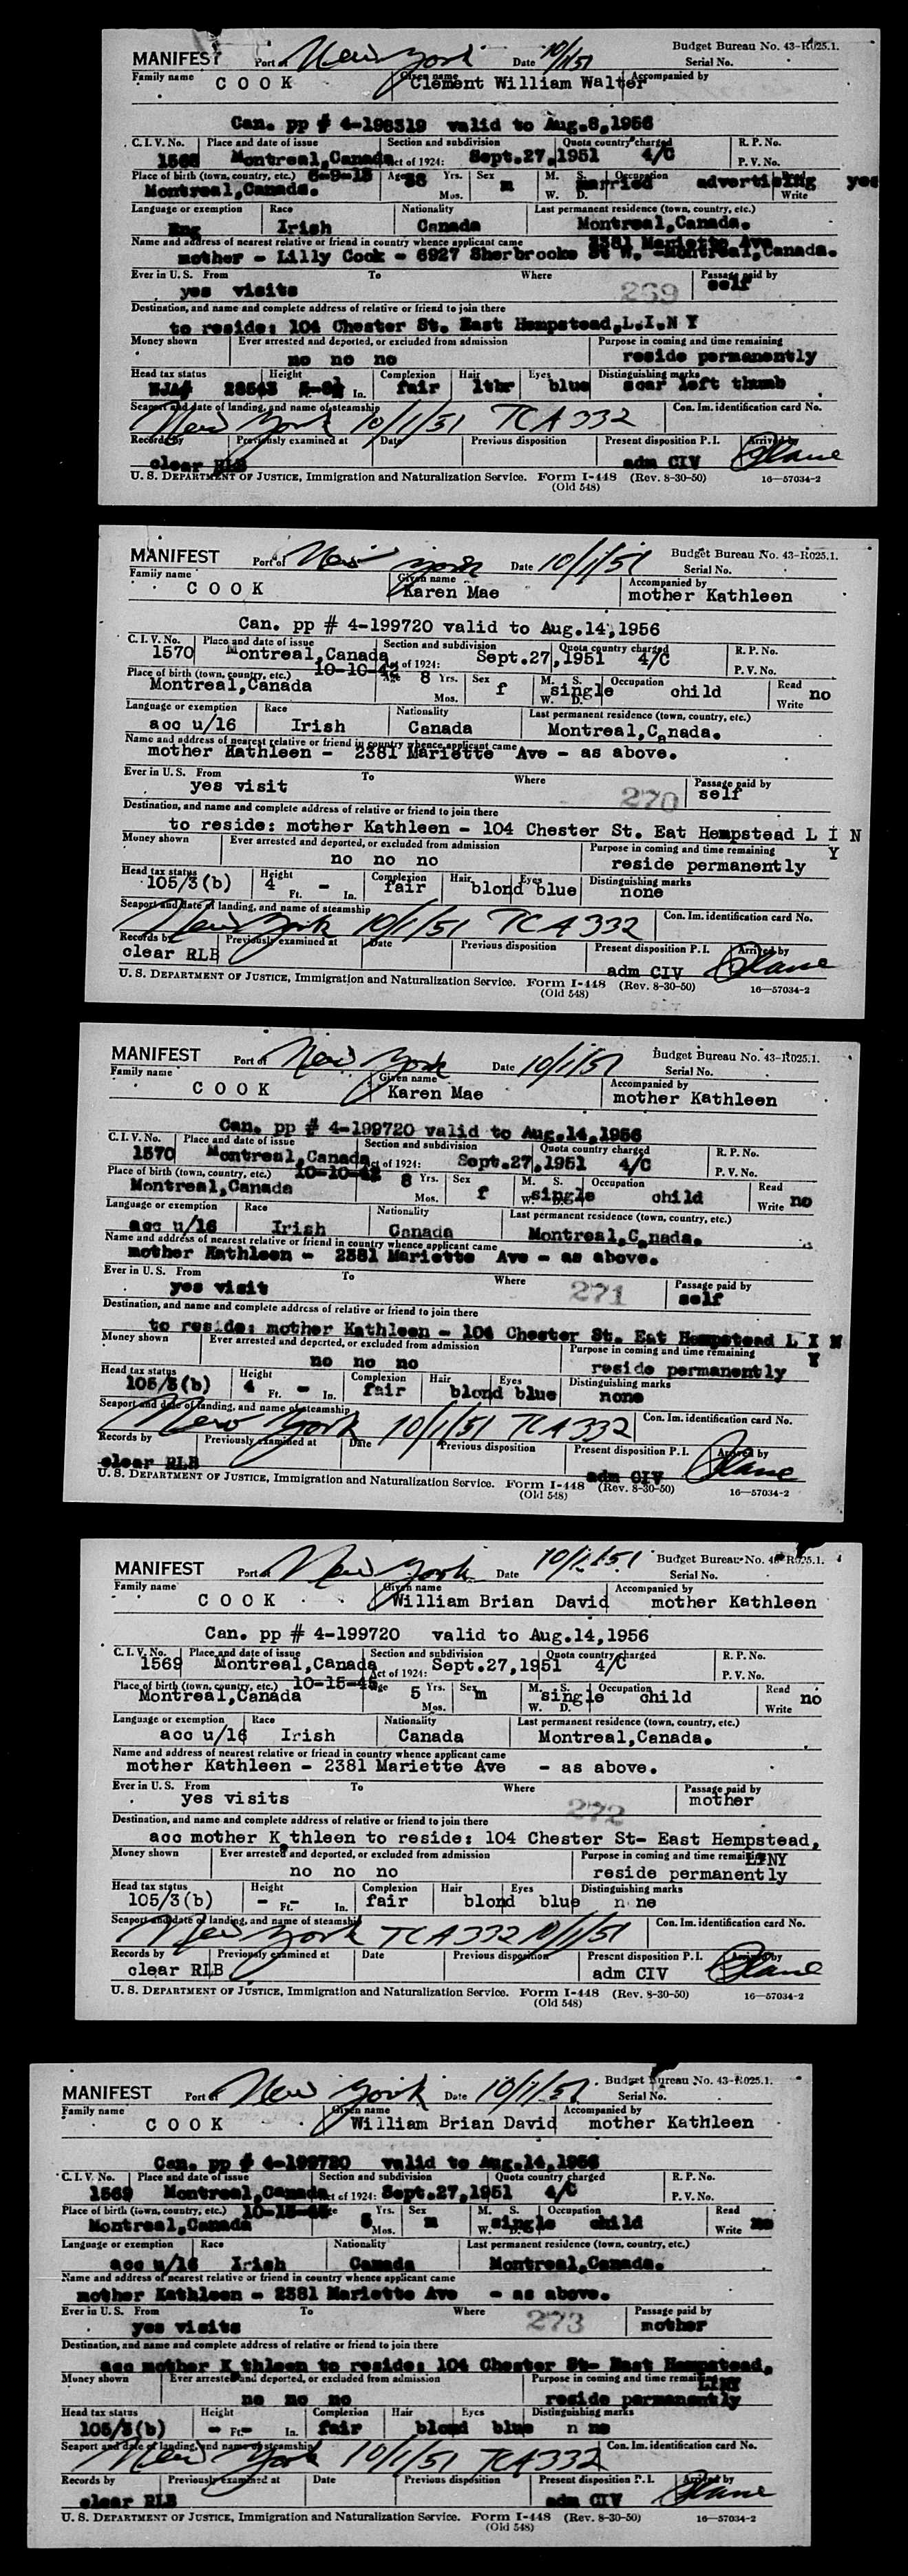 MANIFEST Port of New York Date 10/1/51 Budget Bureau No. 43-R025.1.
Serial No.
Family name Given name Accompanied by
COOK Clement William Walter
Can. pp # 4-198319 valid to Aug.8,1956
C. I. V. No. Place and date of issue Section and subdivision Quota country charged R. P. No.
1568 Montreal,Canada Act of 1924: Sept.27,1951 4/C P. V. No.
Place of birth (town, country, etc.) Age 38 Yrs. Sex M. S. Occupation
Montreal,Canada. Mos. m W. D. married advertising Write yes
Language or exemption Race Nationality Last permanent residence (town, country, etc.)
Eng Irish Canada Montreal,Canada.
Name and address of nearest relative or friend in country whence applicant came 2381 Mariette Ave
mother - Lilly Cook - 6927 Sherbrooke St W. -Montreal,Canada.
Ever in U. S. From To Where Passage paid by
yes visits 269 self
Destination, and name and complete address of relative or friend to join there
to reside: 104 Chester St. East Hempstead,L.I.N Y
Money shown Ever arrested and deported, or excluded from admission Purpose in coming and time remaining
no no no reside permanently
Head tax status Height Complexion Hair Eyes Distinguishing marks
In. fair ltbr blue scar left thumb
Seaport and date of landing, and name of steamship Con. Im. identification card No.
New York 10/1/51 TCA 332
Records by Previously examined at Date Previous disposition Present disposition P. I. Arrived by
clear RLB adm CIV
U. S. DEPARTMENT OF JUSTICE, Immigration and Naturalization Service. Form I-448 (Rev. 8-30-50) 16—57034-2
(Old 548)
MANIFEST Port of New York Date 10/1/51 Budget Bureau No. 43-R025.1.
Serial No.
Family name Given name Accompanied by
COOK Karen Mae mother Kathleen
Can. pp # 4-199720 valid to Aug.14,1956
C. I. V. No. Place and date of issue Section and subdivision Quota country charged R. P. No.
1570 Montreal,Canada Act of 1924: Sept.27,1951 4/C P. V. No.
Place of birth (town, country, etc.) 10-10-42 Age 8 Yrs. Sex M. S. Occupation Read
Montreal,Canada Mos. f W. D. single child Write no
Language or exemption Race Nationality Last permanent residence (town, country, etc.)
acc u/16 Irish Canada Montreal,Canada.
Name and address of nearest relative or friend in country whence applicant came
mother Kathleen - 2381 Mariette Ave - as above.
Ever in U. S. From To Where Passage paid by
yes visit 270 self
Destination, and name and complete address of relative or friend to join there
to reside: mother Kathleen - 104 Chester St. Eat Hempstead L I N
Y
Money shown Ever arrested and deported, or excluded from admission Purpose in coming and time remaining
no no no reside permanently
Head tax status Height Complexion Hair Eyes Distinguishing marks
105/3(b) 4 Ft. - In. fair blond blue none
Seaport and date of landing, and name of steamship Con. Im. identification card No.
New York 10/1/51 TCA 332
Records by Previously examined at Date Previous disposition Present disposition P. I. Arrived by
clear RLB adm CIV
U. S. DEPARTMENT OF JUSTICE, Immigration and Naturalization Service. Form I-448 (Rev. 8-30-50) 16—57034-2
(Old 548)
MANIFEST Port of New York Date 10/1/51 Budget Bureau No. 43-R025.1.
Serial No.
Family name Given name Accompanied by
COOK Karen Mae mother Kathleen
Can. pp # 4-199720 valid to Aug.14,1956
C. I. V. No. Place and date of issue Section and subdivision Quota country charged R. P. No.
1570 Montreal,Canada Act of 1924: Sept.27,1951 4/C P. V. No.
Place of birth (town, country, etc.) 10-10-42 8 Yrs. Sex M. S. Occupation Read
Montreal,Canada Mos. f W. single child Write no
Language or exemption Race Nationality Last permanent residence (town, country, etc.)
acc u/16 Irish Canada Montreal,Canada.
Name and address of nearest relative or friend in country whence applicant came
mother Kathleen - 2381 Mariette Ave - as above.
Ever in U. S. From To Where Passage paid by
yes visit 271 self
Destination, and name and complete address of relative or friend to join there
to reside: mother Kathleen - 104 Chester St. Eat Hempstead L I N
Y
Money shown Ever arrested and deported, or excluded from admission Purpose in coming and time remaining
no no no reside permanently
Head tax status Height Complexion Hair Eyes Distinguishing marks
105/3(b) 4 Ft. - In. fair blond blue none
Seaport and date of landing, and name of steamship Con. Im. identification card No.
New York 10/1/51 TCA 332
Records by Previously examined at Date Previous disposition Present disposition P. I. Arrived by
clear RLB adm CIV
U. S. DEPARTMENT OF JUSTICE, Immigration and Naturalization Service. Form I-448 (Rev. 8-30-50) 16—57034-2
(Old 548)
MANIFEST Port of New York Date 10/1/51 Budget Bureau No. 43-R025.1.
Serial No.
Family name Given name Accompanied by
COOK William Brian David mother Kathleen
Can. pp # 4-199720 valid to Aug.14,1956
C. I. V. No. Place and date of issue Section and subdivision Quota country charged R. P. No.
1569 Montreal,Canada Act of 1924: Sept.27,1951 4/C P. V. No.
Place of birth (town, country, etc.) 10-15-45 Age 5 Yrs. Sex M. S. Occupation Read
Montreal,Canada Mos. m W. D. single child Write no
Language or exemption Race Nationality Last permanent residence (town, country, etc.)
acc u/16 Irish Canada Montreal,Canada.
Name and address of nearest relative or friend in country whence applicant came
mother Kathleen - 2381 Mariette Ave - as above.
Ever in U. S. From To Where Passage paid by
yes visits 272 mother
Destination, and name and complete address of relative or friend to join there
acc mother K thleen to reside: 104 Chester St- East Hempstead,
Money shown Ever arrested and deported, or excluded from admission Purpose in coming and time remaining LINY
no no no reside permanently
Head tax status Height Complexion Hair Eyes Distinguishing marks
105/3(b) - Ft. - In. fair blond blue n ne
Seaport and date of landing, and name of steamship Con. Im. identification card No.
New York TCA 332 10/1/51
Records by Previously examined at Date Previous disposition Present disposition P. I. Arrived by
clear RLB adm CIV
U. S. DEPARTMENT OF JUSTICE, Immigration and Naturalization Service. Form I-448 (Rev. 8-30-50) 16—57034-2
(Old 548)
MANIFEST Port of New York Date 10/1/51 Budget Bureau No. 43-R025.1.
Serial No.
Family name Given name Accompanied by
COOK William Brian David mother Kathleen
Can. pp # 4-199720 valid to Aug.14,1956
C. I. V. No. Place and date of issue Section and subdivision Quota country charged R. P. No.
1569 Montreal,Canada Act of 1924: Sept.27,1951 4/C P. V. No.
Place of birth (town, country, etc.) 10-15-45 5 Yrs. Sex M. S. Occupation Read
Montreal,Canada Mos. m W. single child Write no
Language or exemption Race Nationality Last permanent residence (town, country, etc.)
acc u/16 Irish Canada Montreal,Canada.
Name and address of nearest relative or friend in country whence applicant came
mother Kathleen - 2381 Mariette Ave - as above.
Ever in U. S. From To Where Passage paid by
yes visits 273 mother
Destination, and name and complete address of relative or friend to join there
acc mother K thleen to reside: 104 Chester St- East Hempstead,
Money shown Ever arrested and deported, or excluded from admission Purpose in coming and time remaining LINY
no no no reside permanently
Head tax status Height Complexion Hair Eyes Distinguishing marks
105/3(b) - Ft. - In. fair blond blue n ne
Seaport and date of landing, and name of steamship Con. Im. identification card No.
New York 10/1/51 TCA 332
Records by Previously examined at Date Previous disposition Present disposition P. I. Arrived by
clear RLB adm CIV
U. S. DEPARTMENT OF JUSTICE, Immigration and Naturalization Service. Form I-448 (Rev. 8-30-50) 16—57034-2
(Old 548)